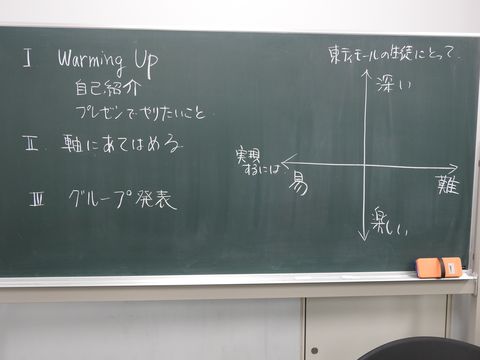 I Warming Up
自己紹介
プレゼンでやりたいこと
II 軸にあてはめる
III グループ発表
東ティモールの生徒にとって
深い
実現
するには
易
難
楽しい